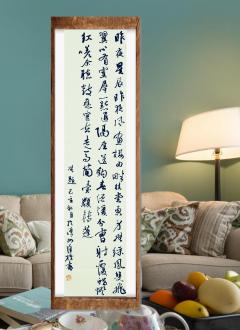 昨夜星辰昨夜風畫樓西畔桂堂東身無綵鳳雙飛
翼心有靈犀一點通隔座送鈎春酒暖分曹射覆蠟燈
紅嗟余聽鼓應官去走馬蘭臺類轉蓬